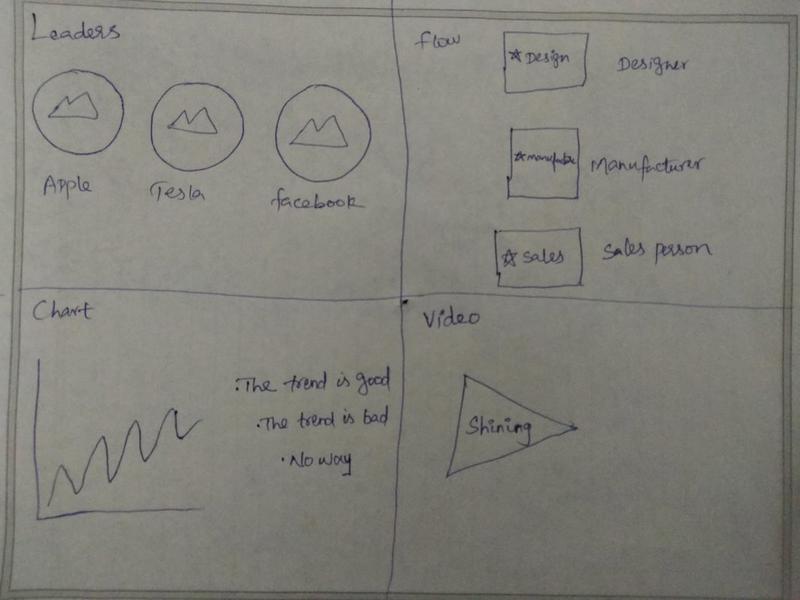 Leaders
Apple
Tesla
facebook
flow
☆ Design
Designer
☆ manufacture
Manufacturer
☆ Sales
Sales person
Chart
• The trend is good
• The trend is bad
• No way
Video
Shining